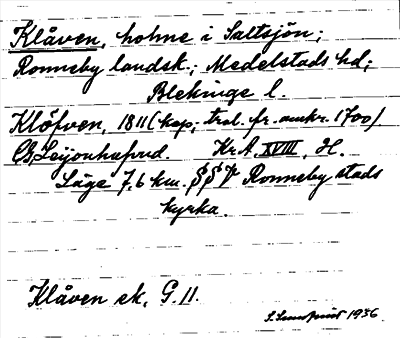 Klåven, holme i Saltsjön;
Ronneby landsk.; Medelstads hd;
Blekinge l.
Klöfven, 1811 (kop, trol. fr. omkr. 1700).
CG, Leijonhufvud. Kr.A. XVIII, H.
Läge 7,6 km. SSV Ronneby stads
kyrka.
Klåven ek, G. 11.
S. Sundquist 1936